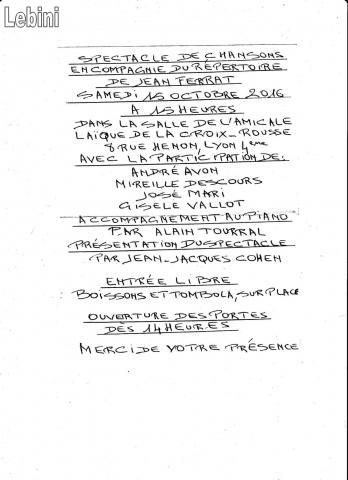 Lebini
SPECTACLE DE CHANSONS
EN COMPAGNIE DU RÉPERTOIRE
DE JEAN FERRAT
SAMEDI 15 OCTOBRE 2016
A 15 HEURES
DANS LA SALLE DE L'AMICALE
LAÏQUE DE LA CROIX-ROUSSE
8 RUE HENON, LYON 4ème
AVEC LA PARTICIPATION DE:
ANDRÉ AVON
MIREILLE DESCOURS
JOSÉ MARI
GISELE VALLOT
ACCOMPAGNEMENT AU PIANO
PAR ALAIN TOURRAL
PRÉSENTATION DU SPECTACLE
PAR JEAN-JACQUES COHEN
ENTRÉE LIBRE
BOISSONS ET TOMBOLA, SUR PLACE
OUVERTURE DES PORTES
DÈS 14 HEURES
MERCI DE VOTRE PRÉSENCE